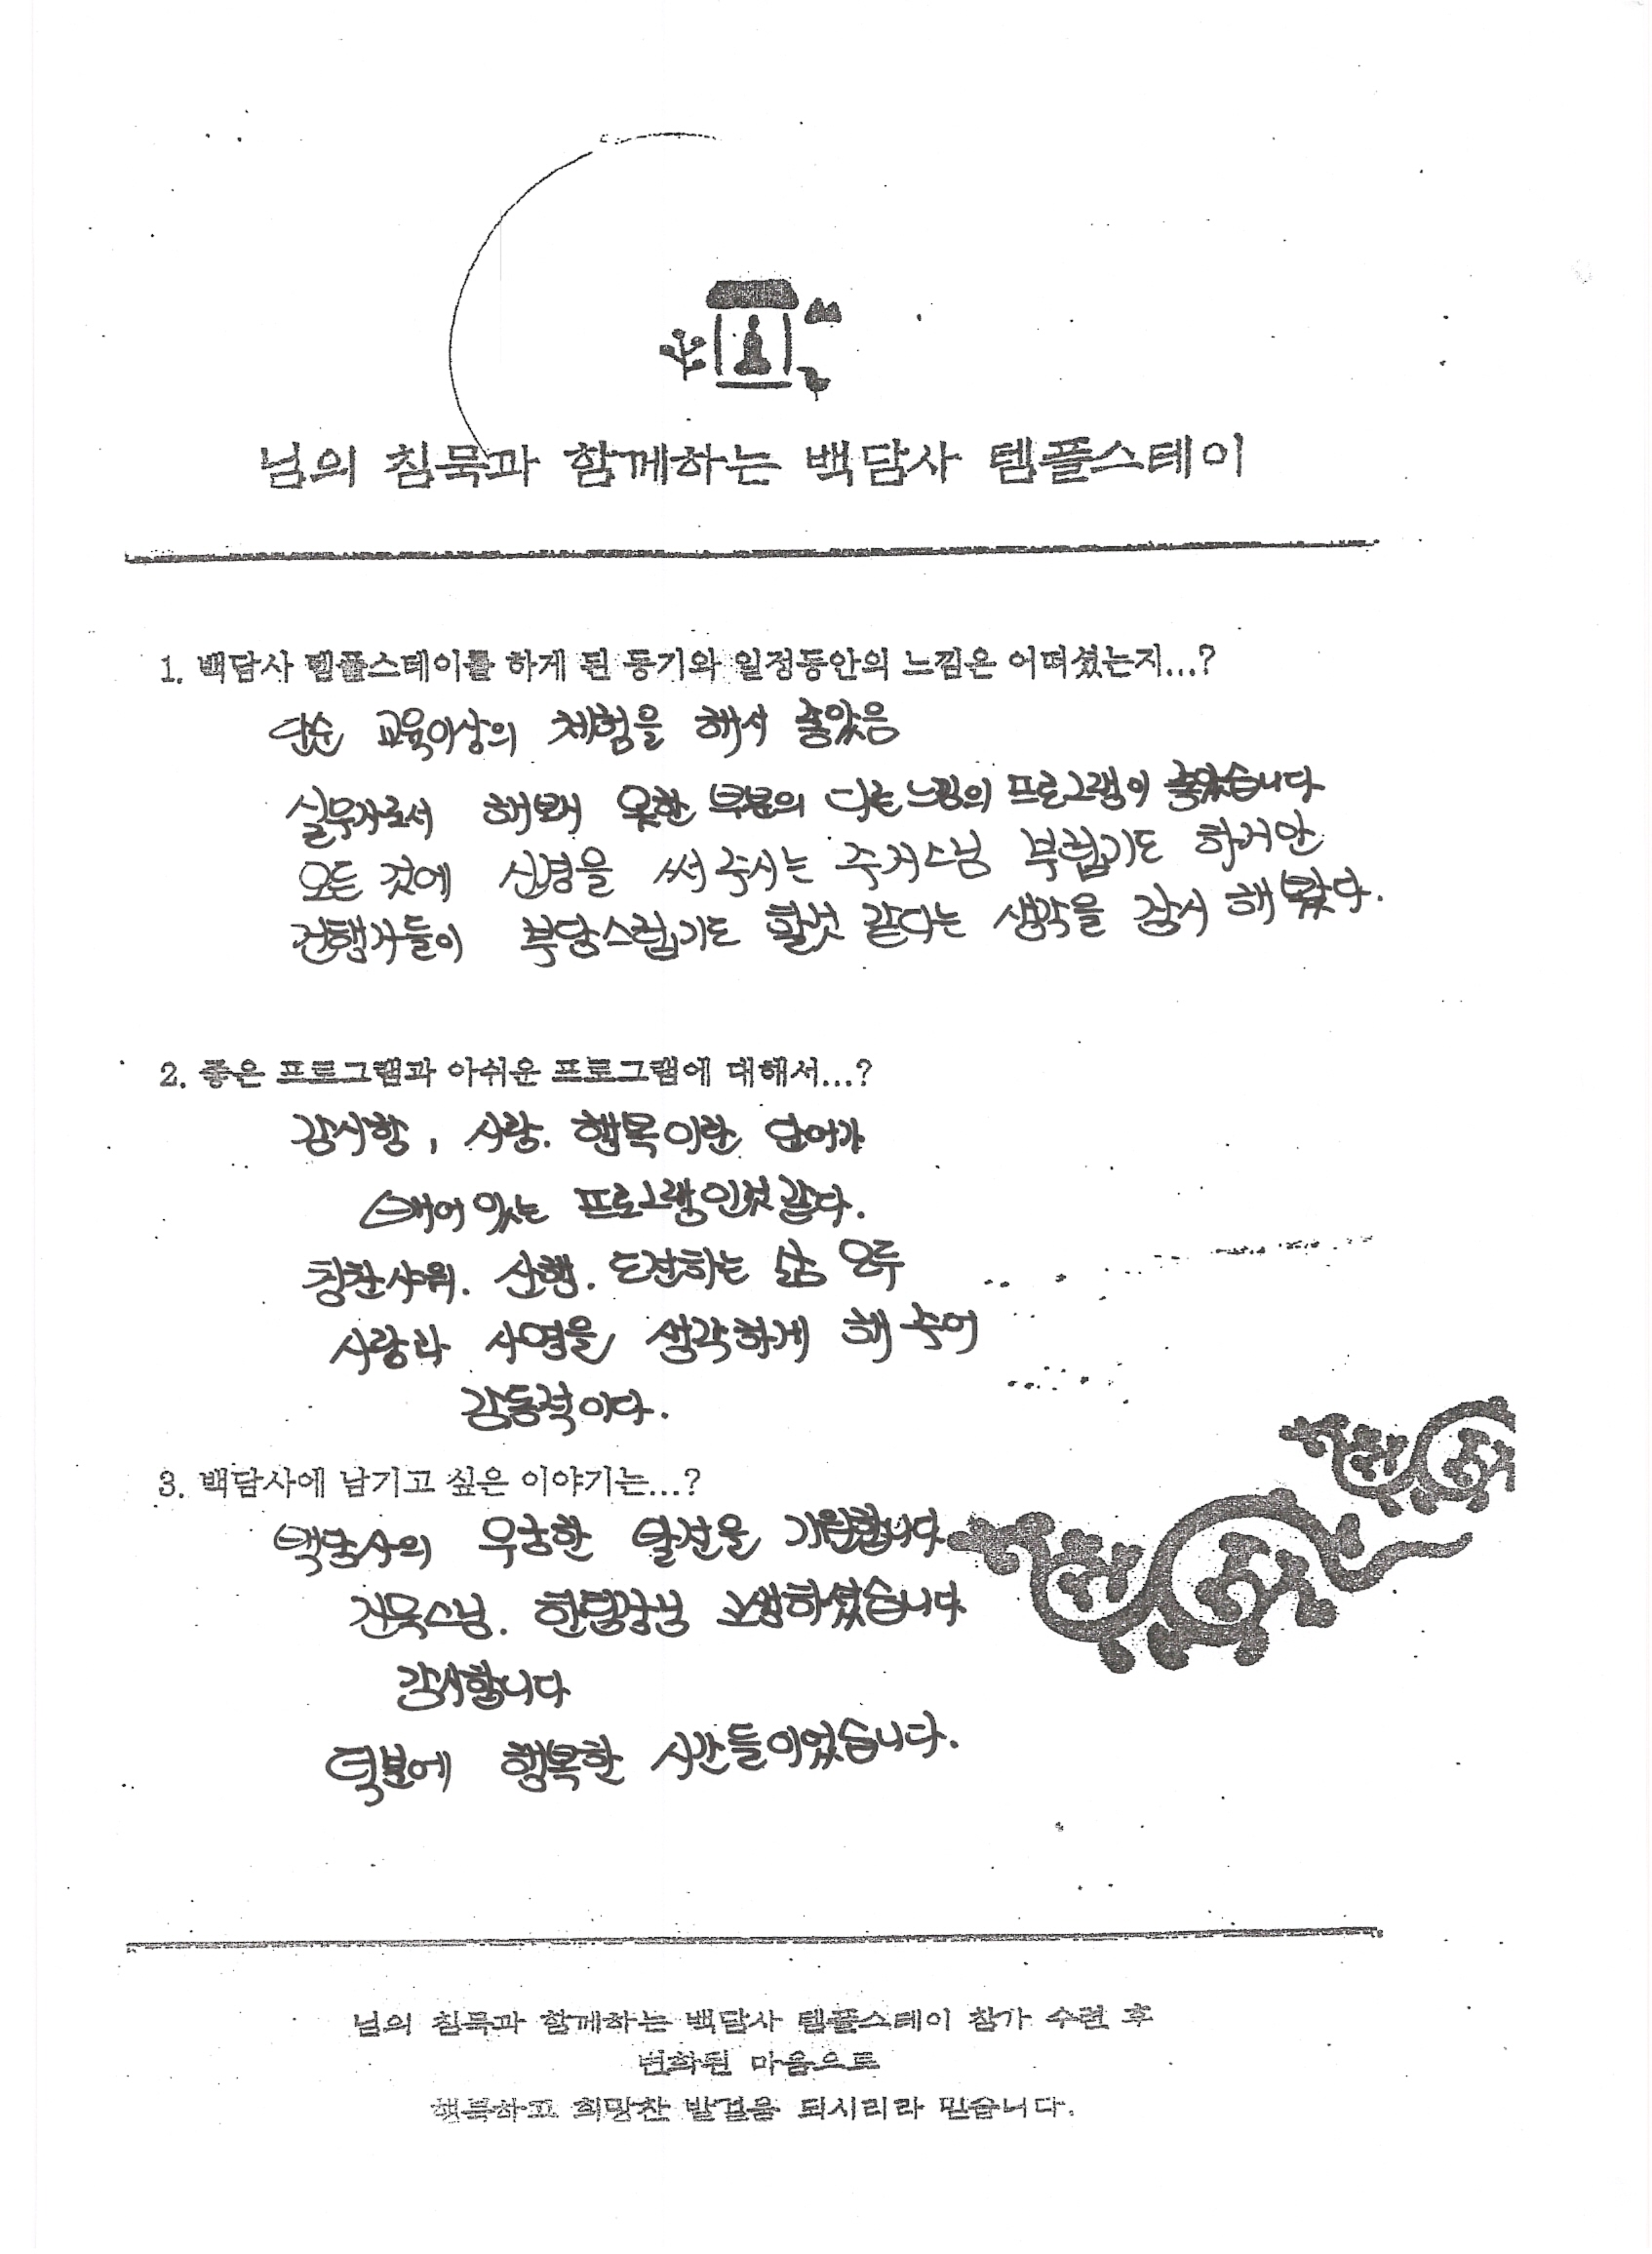 님의 침묵과 함께하는 백담사 템플스테이
1. 백담사 템플스테이를 하게 된 동기와 일정동안의 느낌은 어떠셨는지...?
단순 교육이상의 체험을 해서 좋았음
실무자로서 해보지 못한 부분의 다른 느낌의 프로그램이 좋았습니다
모든 것에 신경을 써 주시는 주지스님 부럽기도 하지만
진행자들이 부담스럽기도 할것 같다는 생각을 잠시 해 봤다.
2. 좋은 프로그램과 아쉬운 프로그램에 대해서...?
감사함, 사랑. 행복이란 단어가
배어있는 프로그램인것 같다.
칭찬샤워. 산행. 도전하는 삶 모두
사랑과 사명을 생각하게 해 주어
감동적이다.
3. 백담사에 남기고 싶은 이야기는...?
백담사의 무궁한 발전을 기원합니다
스님. 고생하셨습니다
감사합니다
덕분에 행복한 시간들이었습니다.
님의 침묵과 함께하는 백담사 템플스테이 참가 수련 후
변화된 마음으로
행복하고 희망찬 발걸음 되시리라 믿습니다.